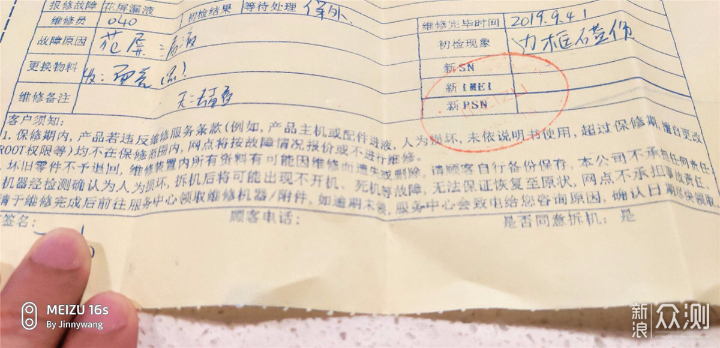 报修故障 花屏漏液 初检结果 等待处理 保外 维修完毕时间 2019.9.4
维修员 040 初检现象 边框磕伤
故障原因 花屏:漏液
更换物料 新SN
新IMEI
维修备注 新PSN
客户须知:
1. 保修期内,产品若违反维修服务条款(例如,产品主机或配件进液,人为损坏,未依说明书使用,超过保修期,擅自更改
ROOT权限等)均不在保修范围内,网点将按故障情况报价或不进行维修。
坏旧零件不予退回,维修装置内所有资料有可能因维修而遗失或删除。请顾客自行备份保存,本公司不承担任何责任
机器经检测确认为人为损坏,拆机后将可能出现不开机、死机等故障,无法保证恢复至原状,网点不承担责任。
请于维修完成后前往服务中心领取维修机器/附件,如逾期未领,服务中心会致电给您咨询原因,确认日期
签名: 顾客电话: 是否同意拆机:是
MEIZU 16s
By Jinnywang
新浪众测